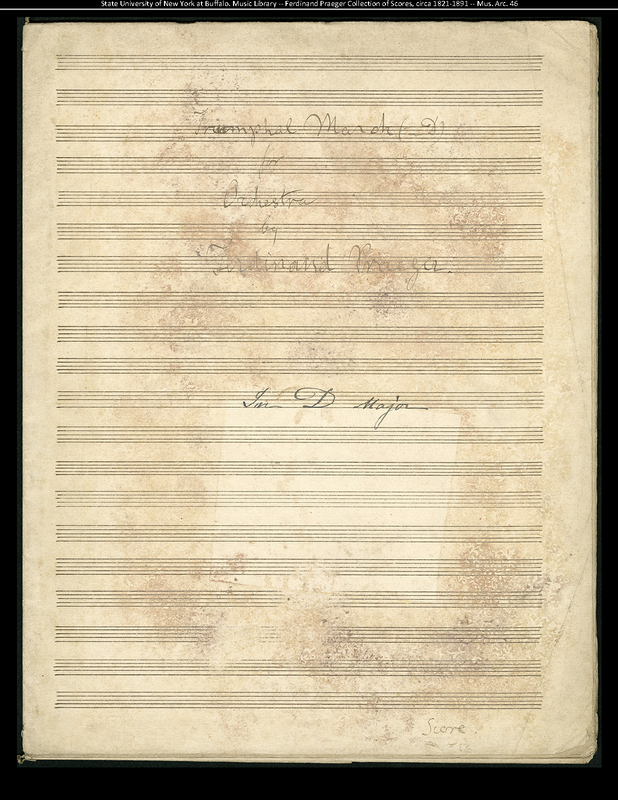 State University of New York at Buffalo. Music Library -- Ferdinand Praeger Collection of Scores, circa 1821-1891 -- Mus. Arc. 46
Triumphal March (- D)
for
Orchestra
by
Ferdinand Praeger.
In D Major
Score.